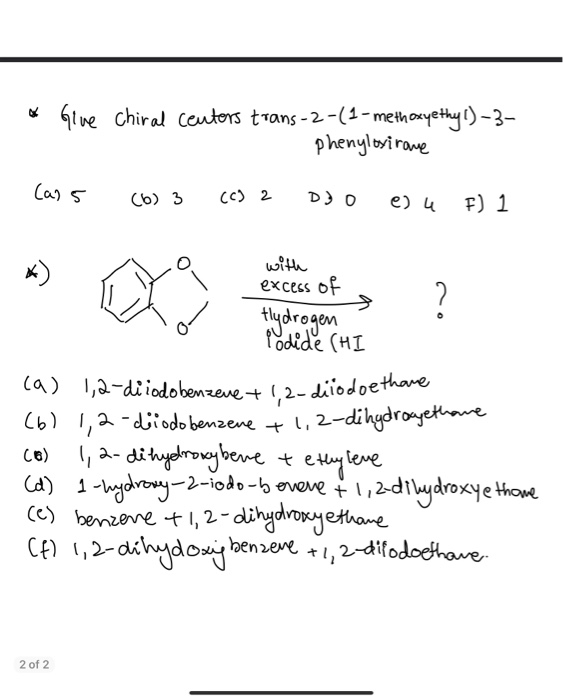 * Give chiral centors trans-2-(1-methoxyethyl)-3-
phenyloxirane
(a) 5 (b) 3 (c) 2 D) 0 e) 4 F) 1
*) O with
excess of
O Hydrogen ?
Iodide (HI
(a) 1,2-diiodobenzene + 1,2-diiodoethane
(b) 1,2-diiodobenzene + 1,2-dihydroxyethane
(c) 1,2-dihydroxybene + ethylene
(d) 1-hydroxy-2-iodo-benene + 1,2-dihydroxyethane
(e) benzene + 1,2-dihydroxyethane
(f) 1,2-dihydoxybenzene + 1,2-diiodoethane.
2 of 2